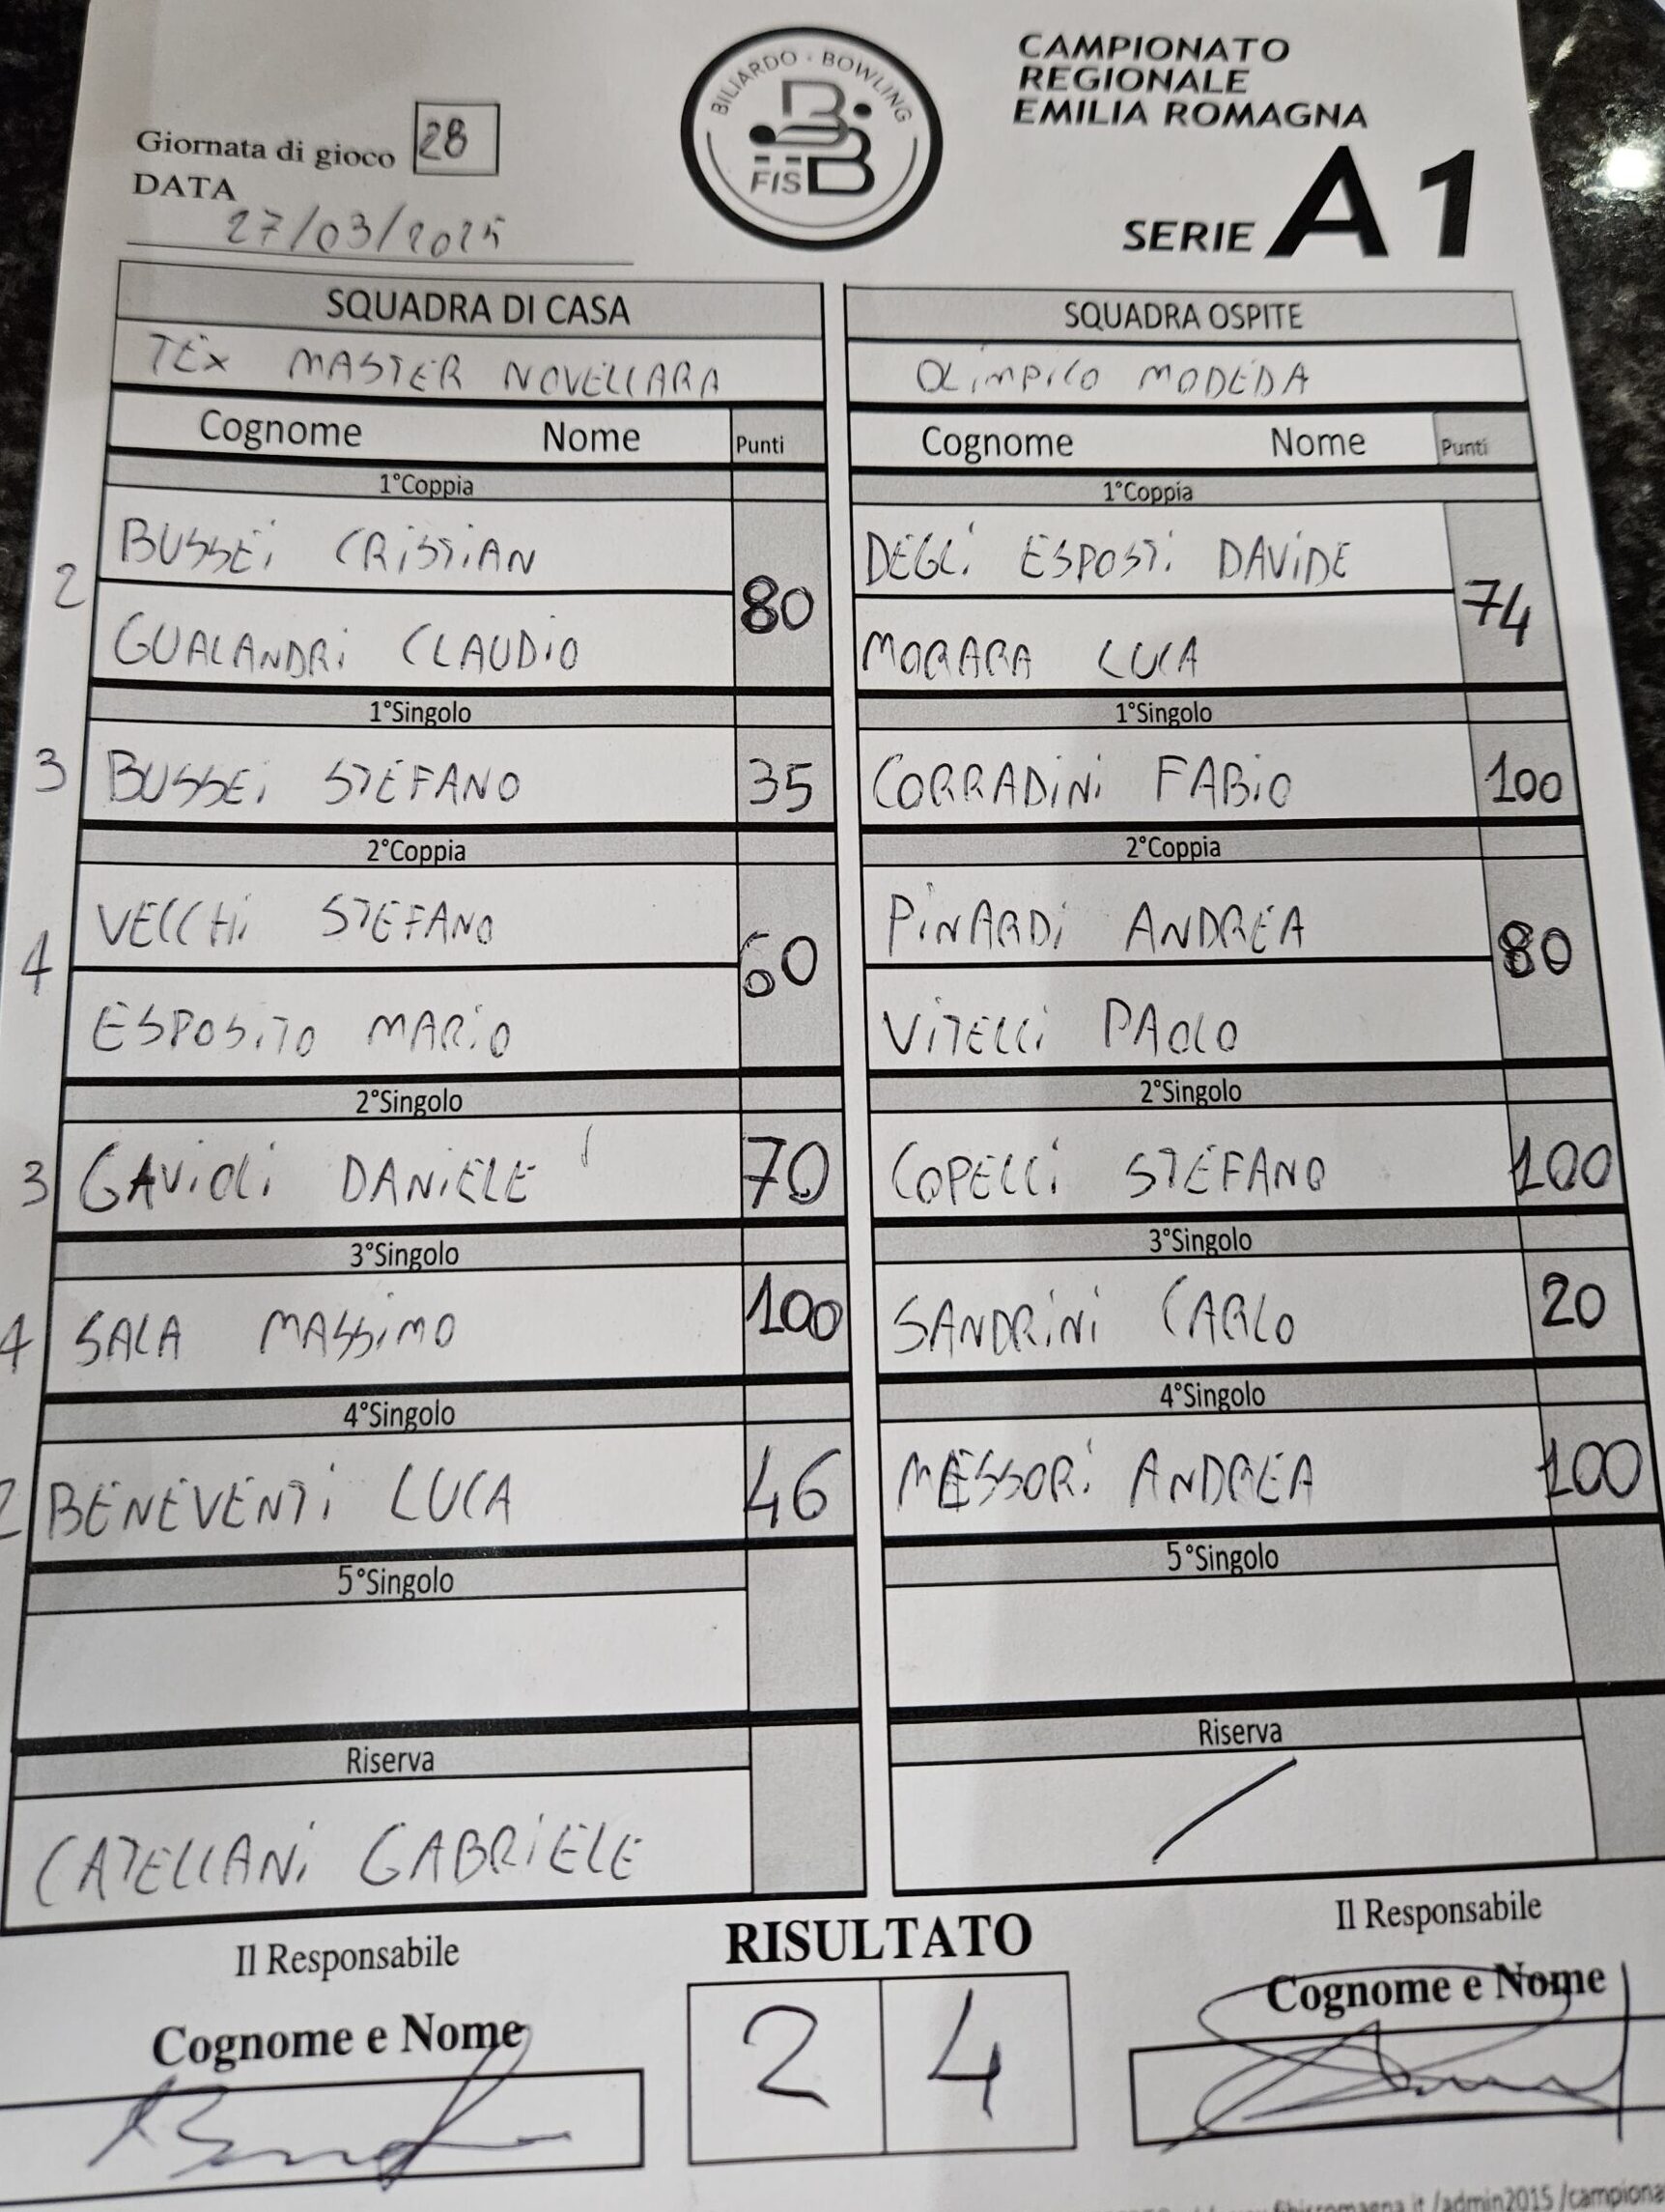 CAMPIONATO
REGIONALE
EMILIA ROMAGNA
SERIE A1
BILIARDO - BOWLING
FISBB
Giornata di gioco 28
DATA
27/03/2025
SQUADRA DI CASA
TEX MASTER NOVELLARA
Cognome Nome Punti
1°Coppia
2 BUSSEI CRISTIAN
GUALANDRI CLAUDIO 80
1°Singolo
3 BUSSEI STEFANO 35
2°Coppia
4 VECCHI STEFANO
ESPOSITO MARIO 60
2°Singolo
3 GAVIOLI DANIELE 70
3°Singolo
4 SALA MASSIMO 100
4°Singolo
2 BENEVENTI LUCA 46
5°Singolo
Riserva
CATELLANI GABRIELE
SQUADRA OSPITE
OLIMPICO MODEDA
Cognome Nome Punti
1°Coppia
DEGLI ESPOSTI DAVIDE
MORARA LUCA 74
1°Singolo
CORRADINI FABIO 100
2°Coppia
PINARDI ANDREA
VITELLI PAOLO 80
2°Singolo
COPELLI STEFANO 100
3°Singolo
SANDRINI CARLO 20
4°Singolo
MESSORI ANDREA 100
5°Singolo
Riserva
/
Il Responsabile
Cognome e Nome
RISULTATO
2 4
Il Responsabile
Cognome e Nome